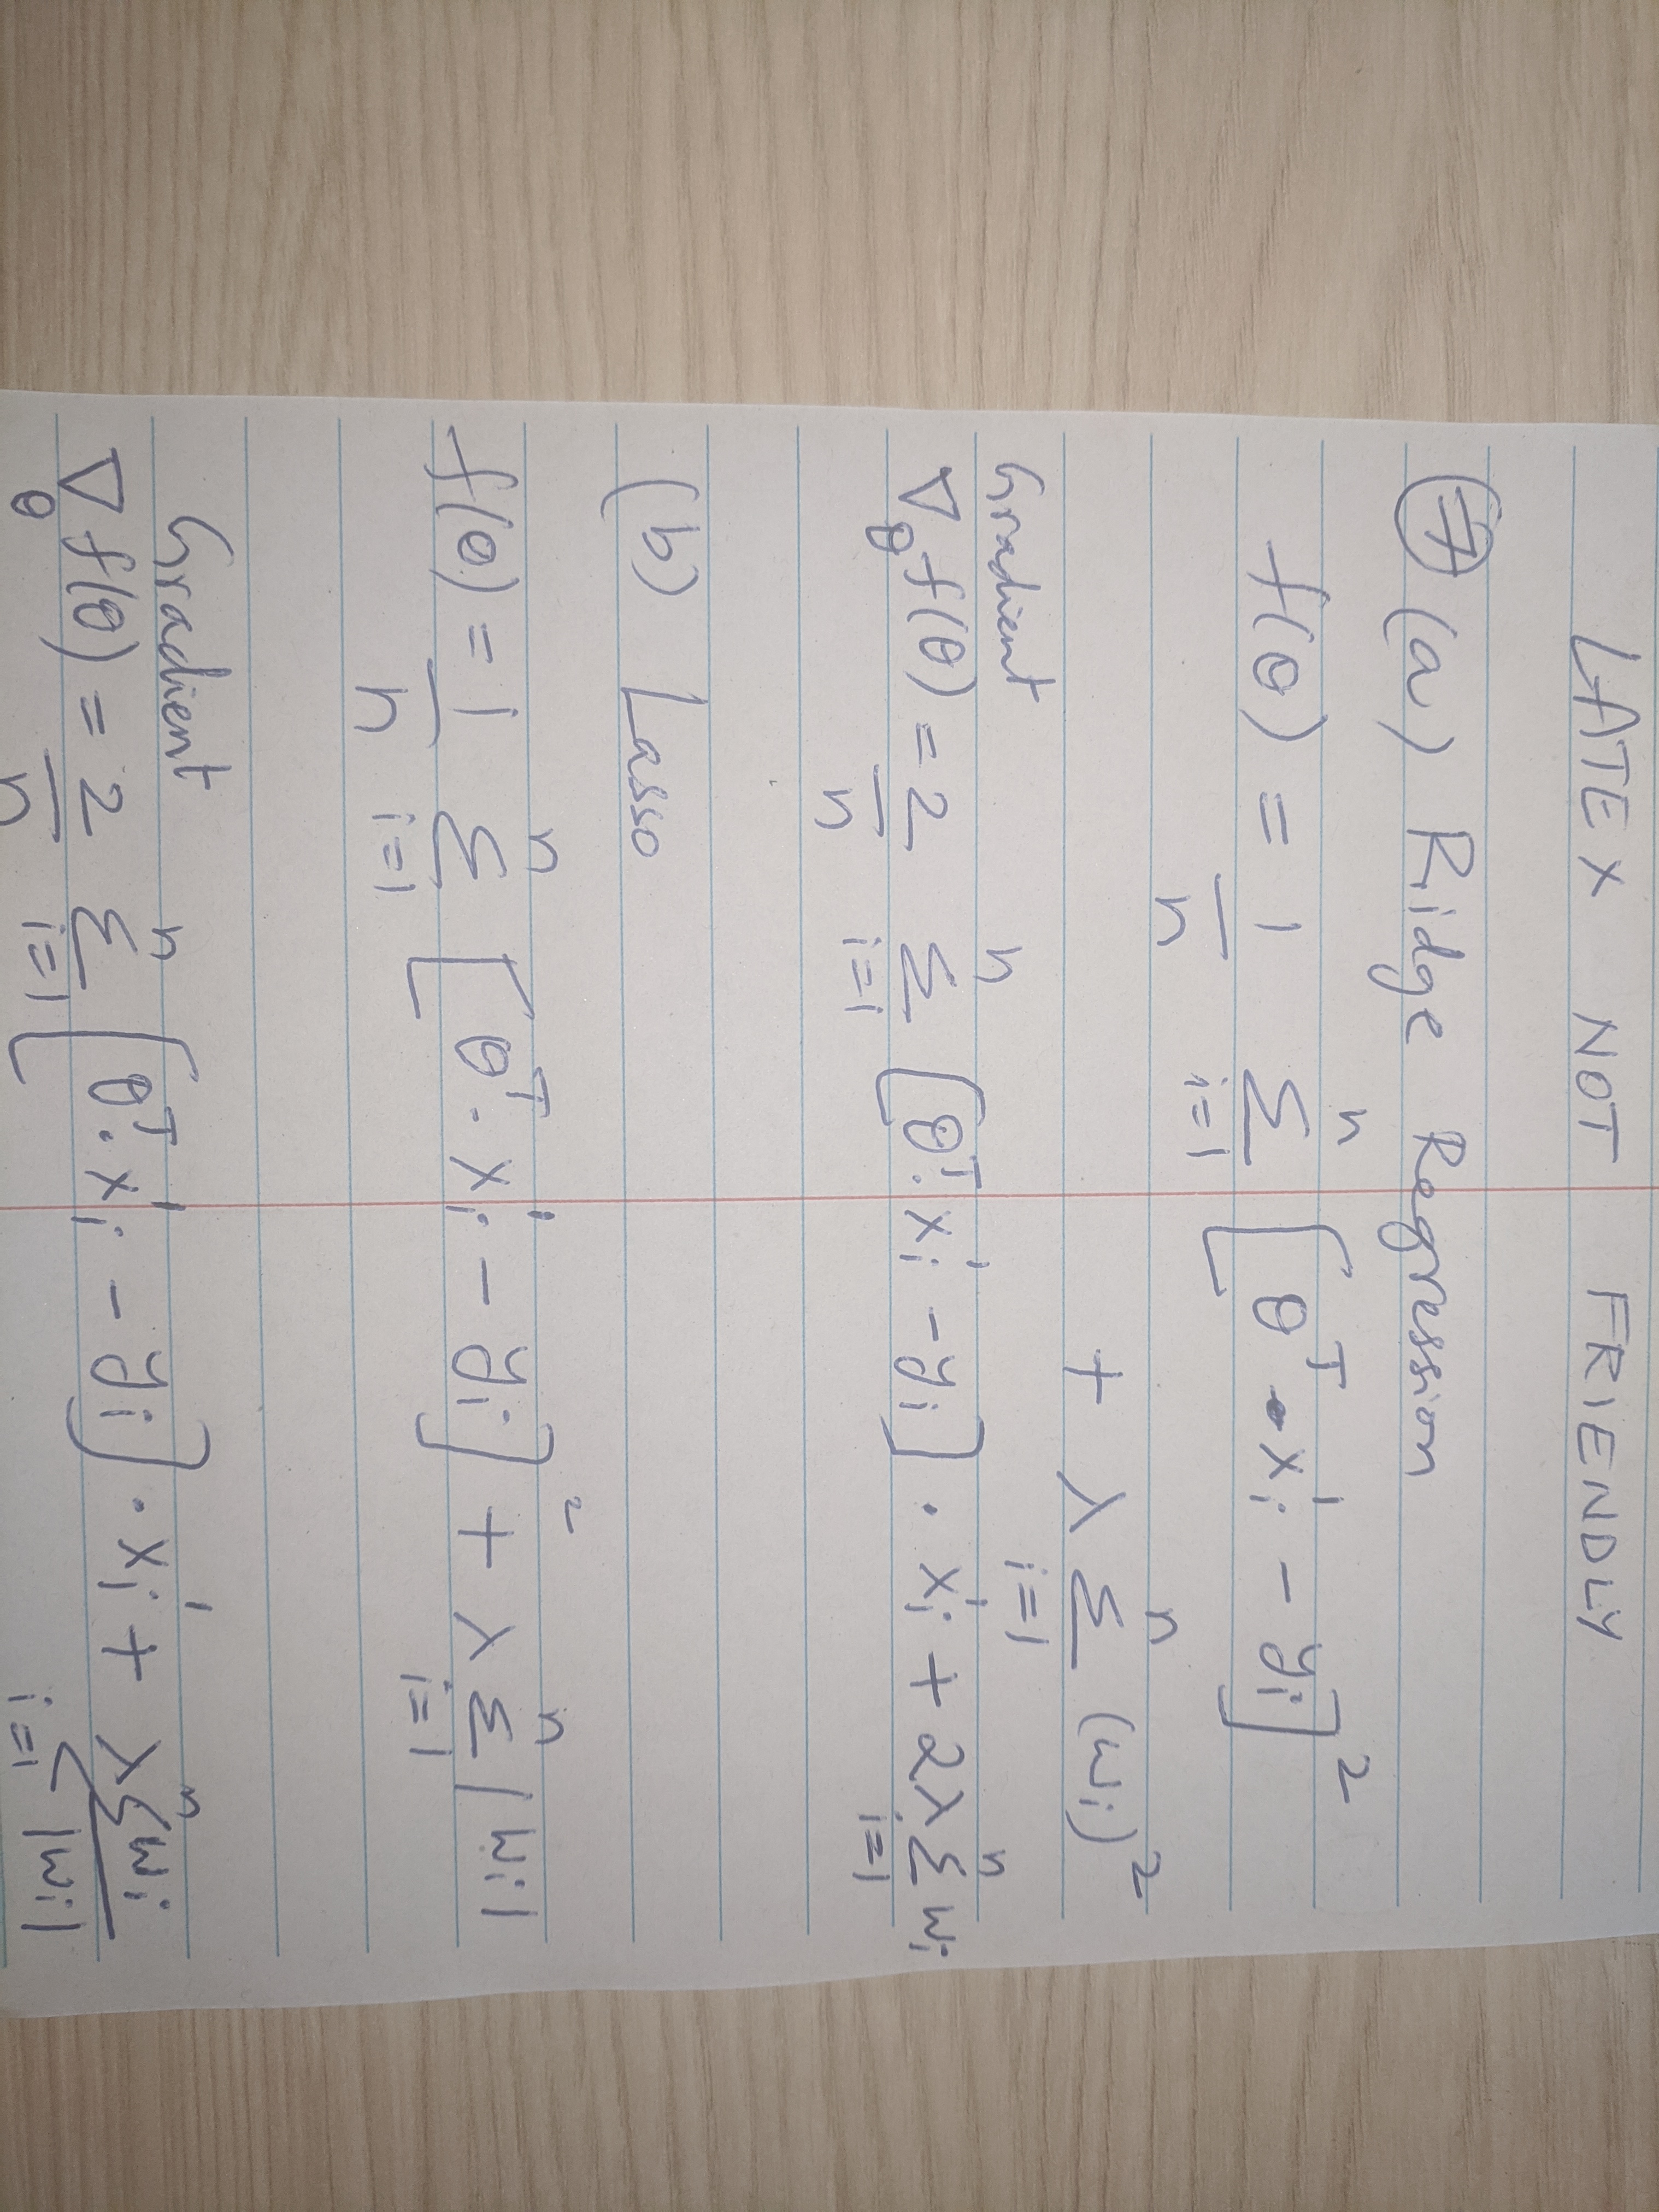 LATEX NOT FRIENDLY
7 (a) Ridge Regression
f(θ) = 1/n Σ_{i=1}^{n} [θ^T · x_i' - y_i]^2
+ λ Σ_{i=1}^{n} (w_i)^2
Gradient
∇_θ f(θ) = 2/n Σ_{i=1}^{n} [θ^T · x_i' - y_i] · x_i' + 2λ Σ_{i=1}^{n} w_i
(b) Lasso
f(θ) = 1/n Σ_{i=1}^{n} [θ^T · x_i' - y_i]^2 + λ Σ_{i=1}^{n} |w_i|
Gradient
∇_θ f(θ) = 2/n Σ_{i=1}^{n} [θ^T · x_i' - y_i] · x_i' + λ Σ_{i=1}^{n} w_i/|w_i|